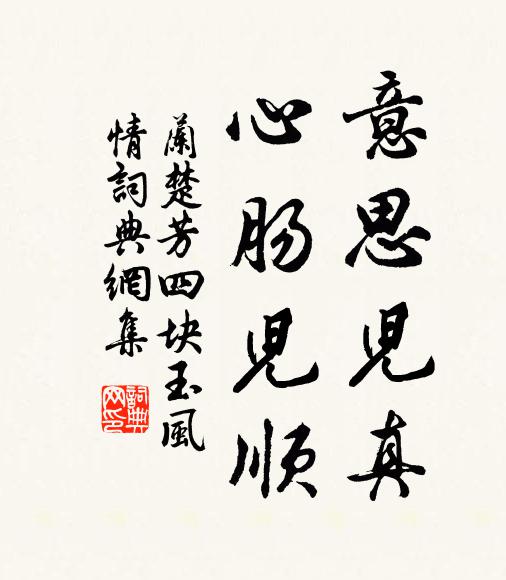 意思児真
心肠児順
蘭楚芳四块玉風
情詞典網集
詞典
网印